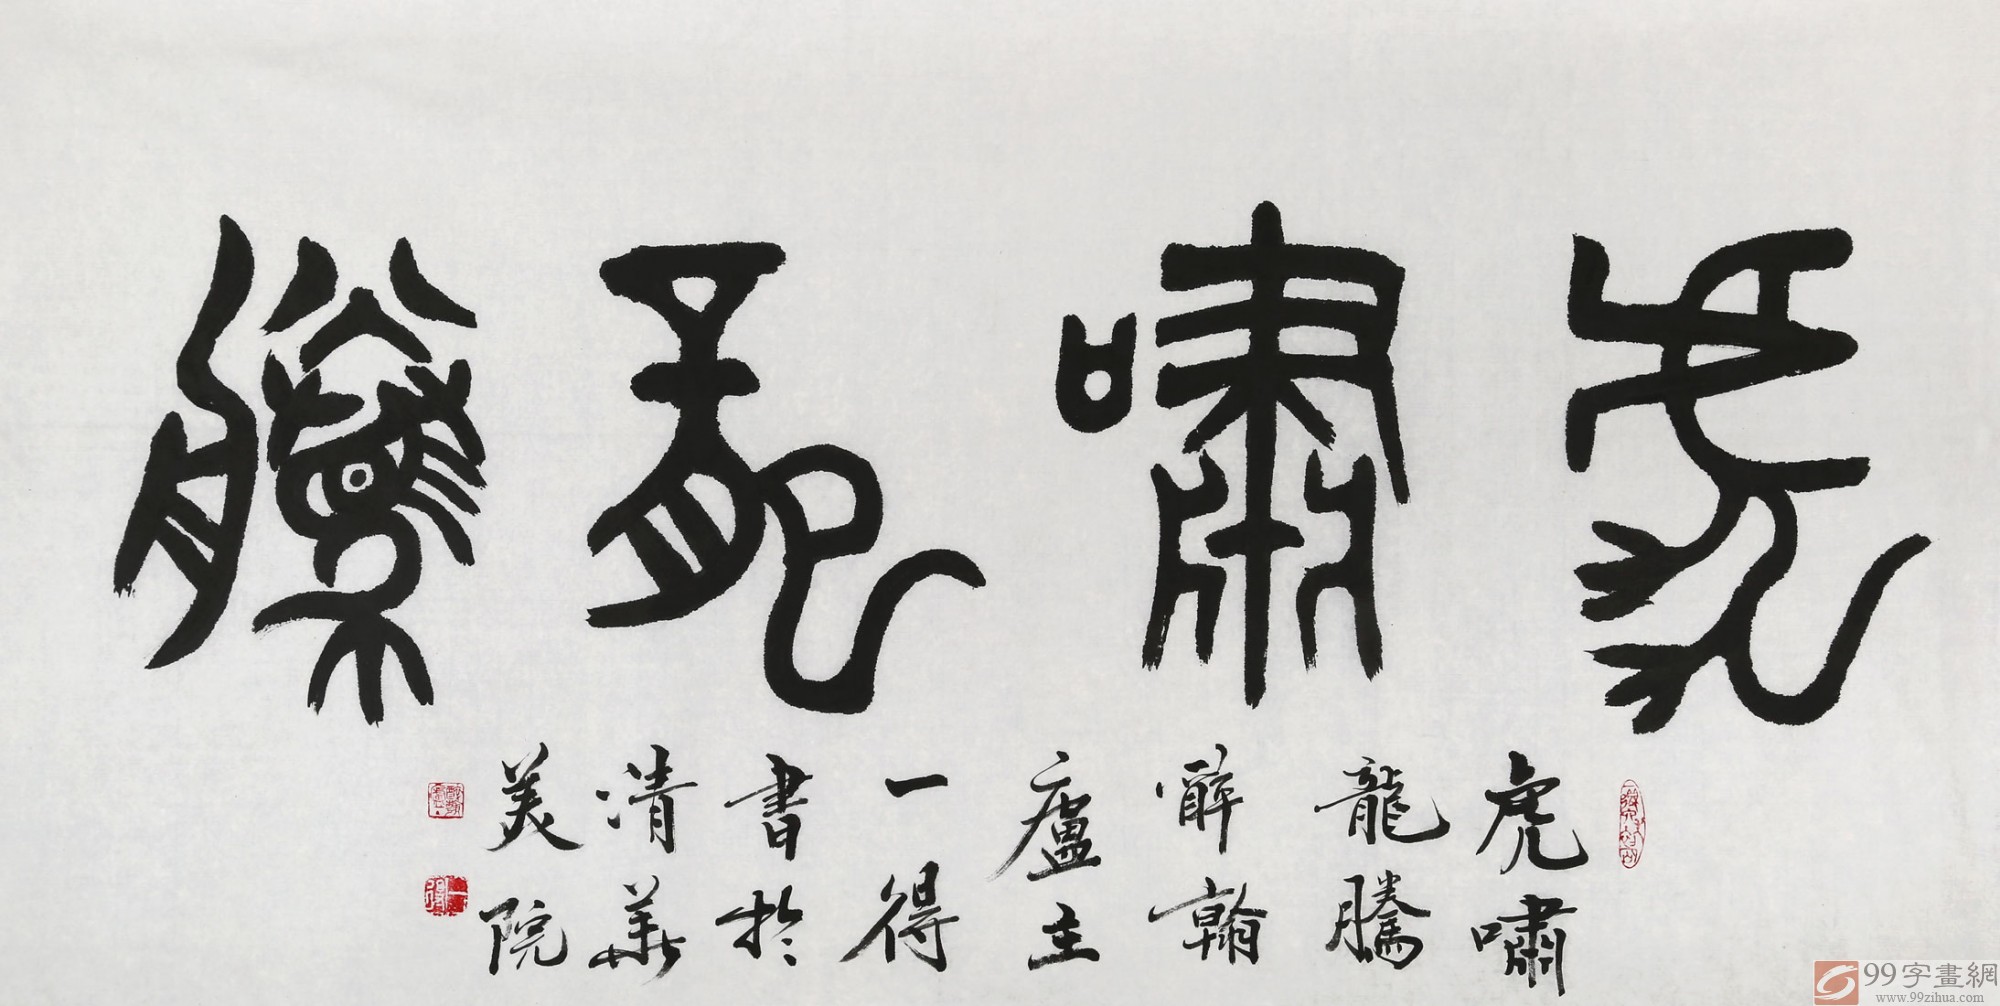 虎嘯龍騰
虎嘯
龍騰
醉翰
廬主
一得
書於
清華
美院
99字畫網
www.99zihua.com